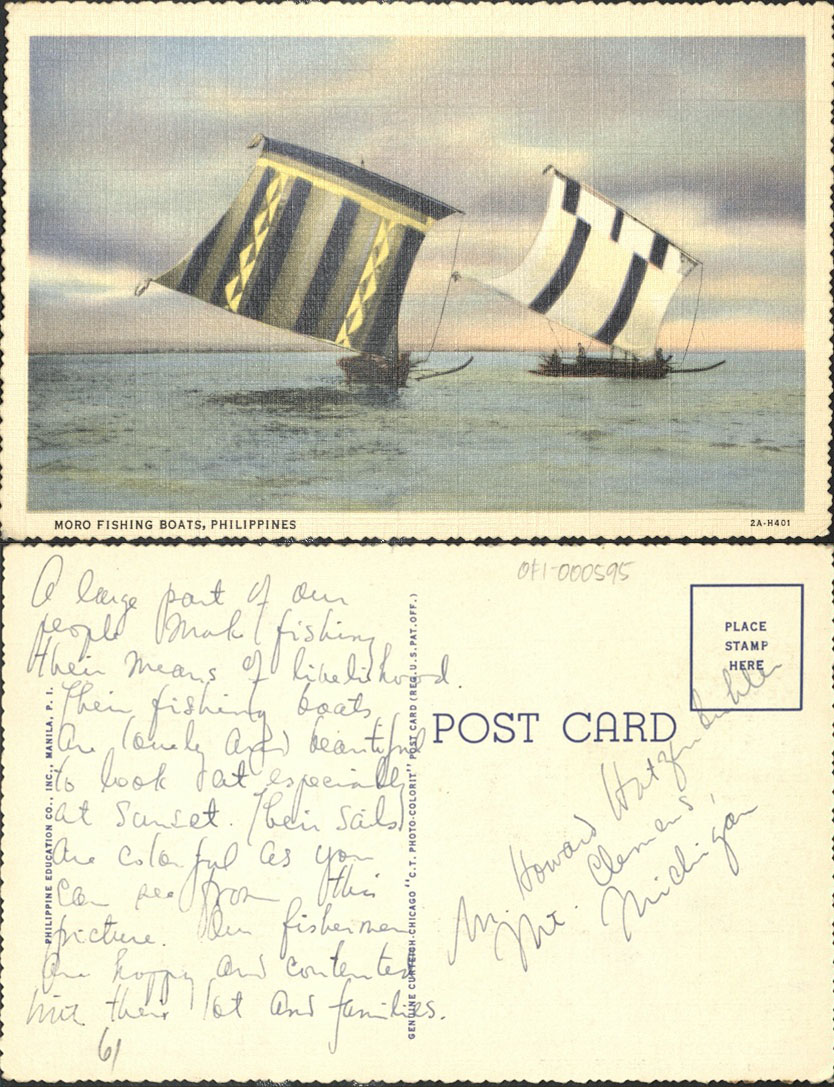 MORO FISHING BOATS, PHILIPPINES
2A-H401
A large part of our
people Make fishing
their means of livelihood.
Their fishing boats
are lovely and beautiful
to look at especially
at Sunset. Their Sails
are colorful as you
can see from this
picture. Our fishermen
are happy and contented
with their lot and families.
61
PHILIPPINE EDUCATION CO., INC., MANILA, P. I.
GENUINE CURTEICH-CHICAGO "C.T. PHOTO-COLORIT" POST CARD (REG. U. S. PAT. OFF.)
OF1-000595
PLACE
STAMP
HERE
POST CARD
Mr. Howard
Mt. Clemens,
Michigan